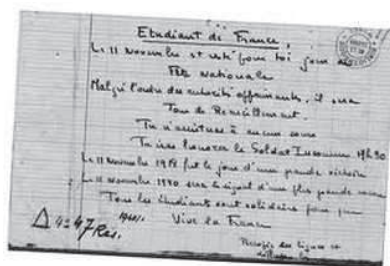 Etudiant de France,
Le 11 Novembre est resté pour toi jour de
Fête Nationale
Malgré l'ordre des autorités opprimantes, il sera
Jour de Recueillement.
Tu n'assisteras à aucun cours
Tu iras honorer le Soldat Inconnu 17h30
Le 11 Novembre 1918 fut le jour d'une grande victoire
Le 11 Novembre 1940 sera le signal d'une plus grande encore
Tous les étudiants sont solidaires pour que
Vive la France
4° 47 Res.
Recopie ces lignes et
diffuse les